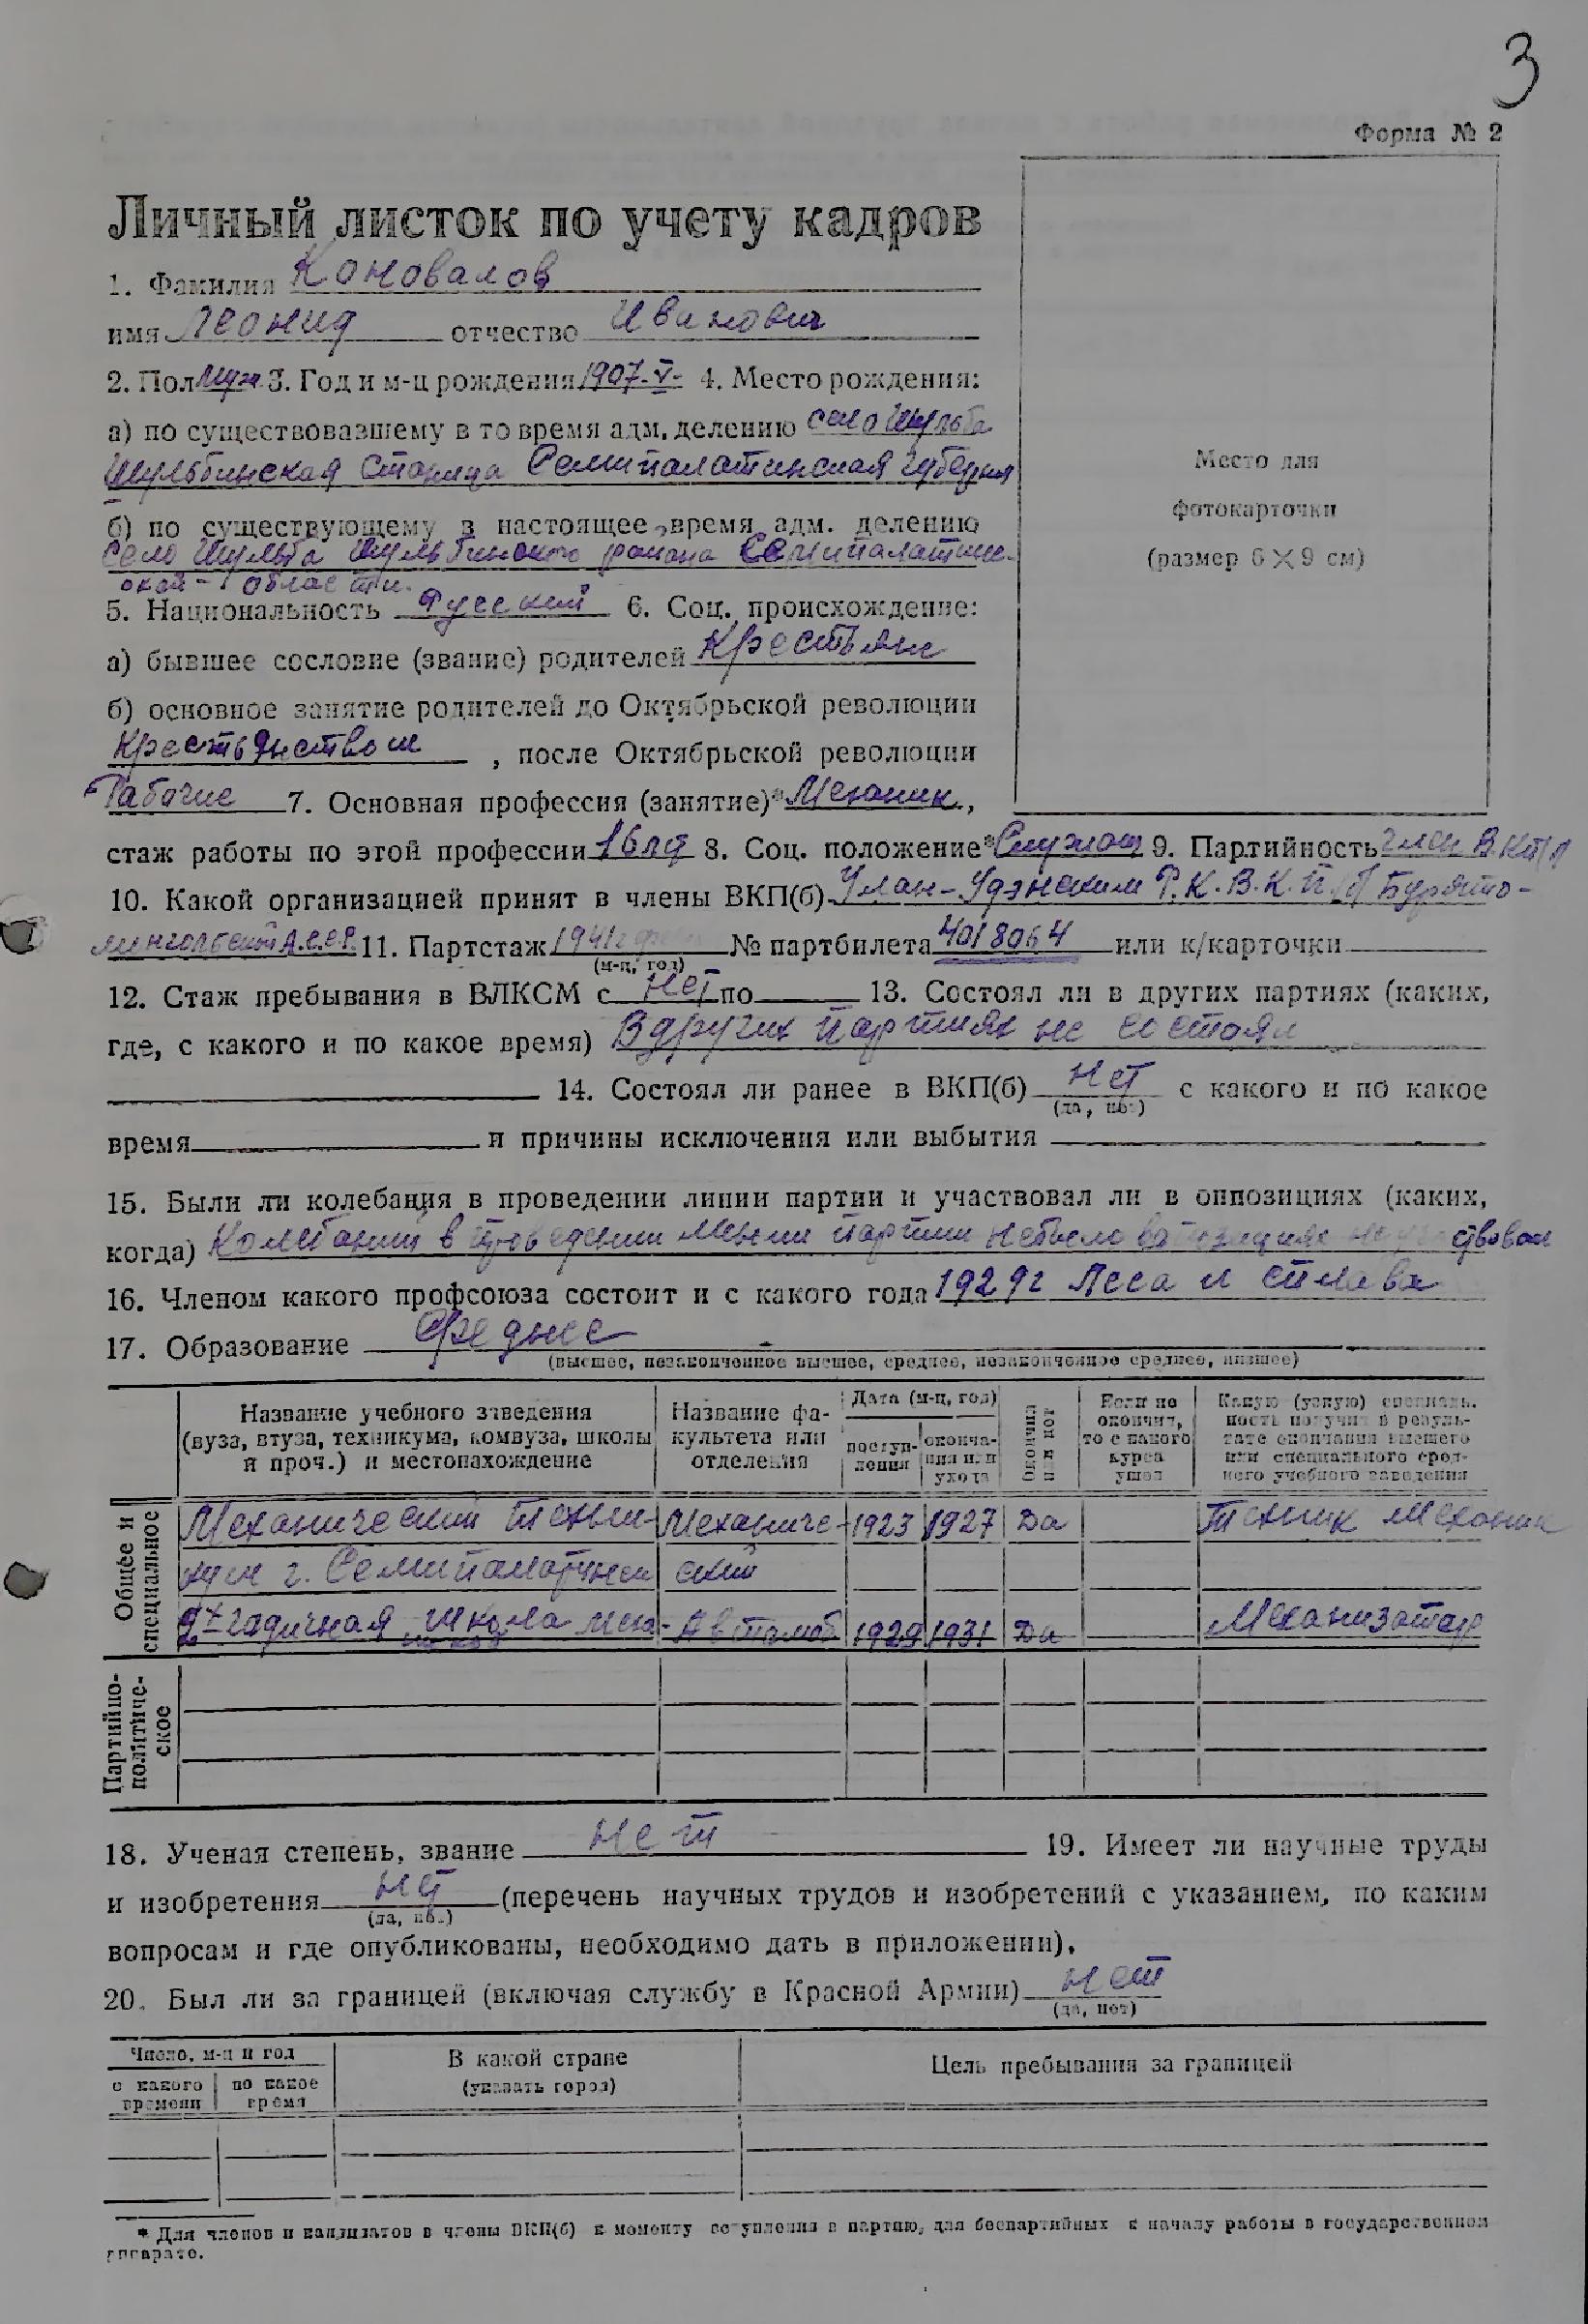 3
Форма № 2
Личный листок по учету кадров
1. Фамилия Коновалов
имя Леонид отчество Иванович
2. Пол муж 3. Год и м-ц рождения 1907-V- 4. Место рождения:
а) по существовавшему в то время адм. делению село Шульба
Шульбинская Станица Семипалатинская губерния
б) по существующему в настоящее время адм. делению
Село Шульба Шульбинского района Семипалатин-
ской - области.
5. Национальность Русский 6. Соц. происхождение:
а) бывшее сословие (звание) родителей Крестьяне
б) основное занятие родителей до Октябрьской революции
Крестьянством, после Октябрьской революции
Рабочие 7. Основная профессия (занятие)* Механик,
стаж работы по этой профессии 16 лет 8. Соц. положение* Служащ 9. Партийность член В.КП/б
10. Какой организацией принят в члены ВКП(б) Улан-Удэнским Р.К.В.К.П./б/ Бурято-
монгольской А.С.С.Р. 11. Партстаж 1941г № партбилета 4018064 или к/карточки
(м-ц, год)
12. Стаж пребывания в ВЛКСМ с Нет по 13. Состоял ли в других партиях (каких,
где, с какого и по какое время) В других партиях не состоял
14. Состоял ли ранее в ВКП(б) Нет с какого и по какое
(да, нет)
время и причины исключения или выбытия
15. Были ли колебания в проведении линии партии и участвовал ли в оппозициях (каких,
когда) Колебаний в проведении линии партии небыло в опозициях не участвовал
16. Членом какого профсоюза состоит и с какого года 1929г Леса и сплава
17. Образование Среднее
(высшее, незаконченное высшее, среднее, незаконченное среднее, низшее)
Название учебного заведения (вуза, втуза, техникума, комвуза, школы и проч.) и местонахождение
Название факультета или отделения
Дата (м-ц, год)
поступления
окончания или ухода
Окончил или нет
Если не окончил, то с какого курса ушел
Какую (узкую) специальность получил в результате окончания высшего или специального среднего учебного заведения
Общее и специальное
Механический техни- Механиче- 1923 1927 Да Техник механик
кум г. Семипалатинск ский
2х годичная школа мех- Автомоб 1929 1931 Да Механизатор
Партийно-политическое
18. Ученая степень, звание Нет 19. Имеет ли научные труды
и изобретения нет (перечень научных трудов и изобретений с указанием, по каким
(да, нет)
вопросам и где опубликованы, необходимо дать в приложении).
20. Был ли за границей (включая службу в Красной Армии) нет
(да, нет)
Число, м-ц и год
с какого времени
по какое время
В какой стране
(указать город)
Цель пребывания за границей
* Для членов и кандидатов в члены ВКП(б) к моменту вступления в партию, для беспартийных к началу работы в государственном
аппарате.